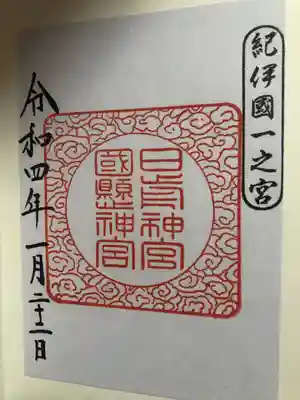 紀伊國一之宮
日前神宮
國縣神宮
令和四年一月二十二日